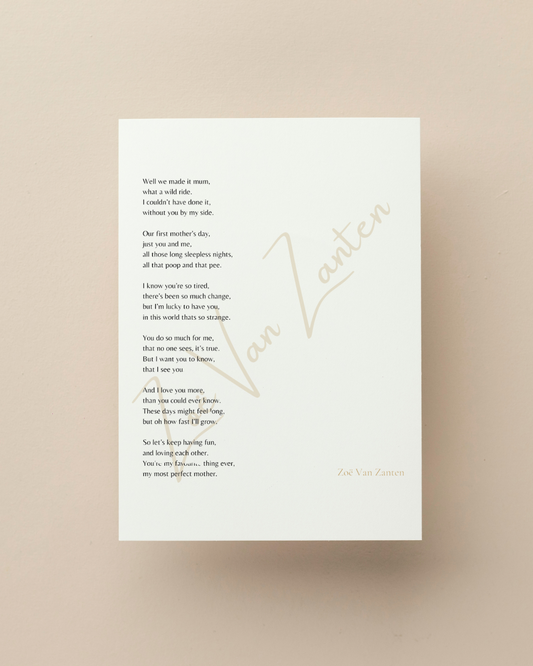 Well we made it mum,
what a wild ride.
I couldn't have done it,
without you by my side.
Our first mother's day,
just you and me,
all those long sleepless nights,
all that poop and that pee.
I know you're so tired,
there's been so much change,
but I'm lucky to have you,
in this world thats so strange.
You do so much for me,
that no one sees, it's true.
But I want you to know,
that I see you
And I love you more,
than you could ever know.
These days might feel long,
but oh how fast I'll grow.
So let's keep having fun,
and loving each other.
You're my favourite thing ever,
my most perfect mother.
Zoë Van Zanten
Zoë Van Zanten